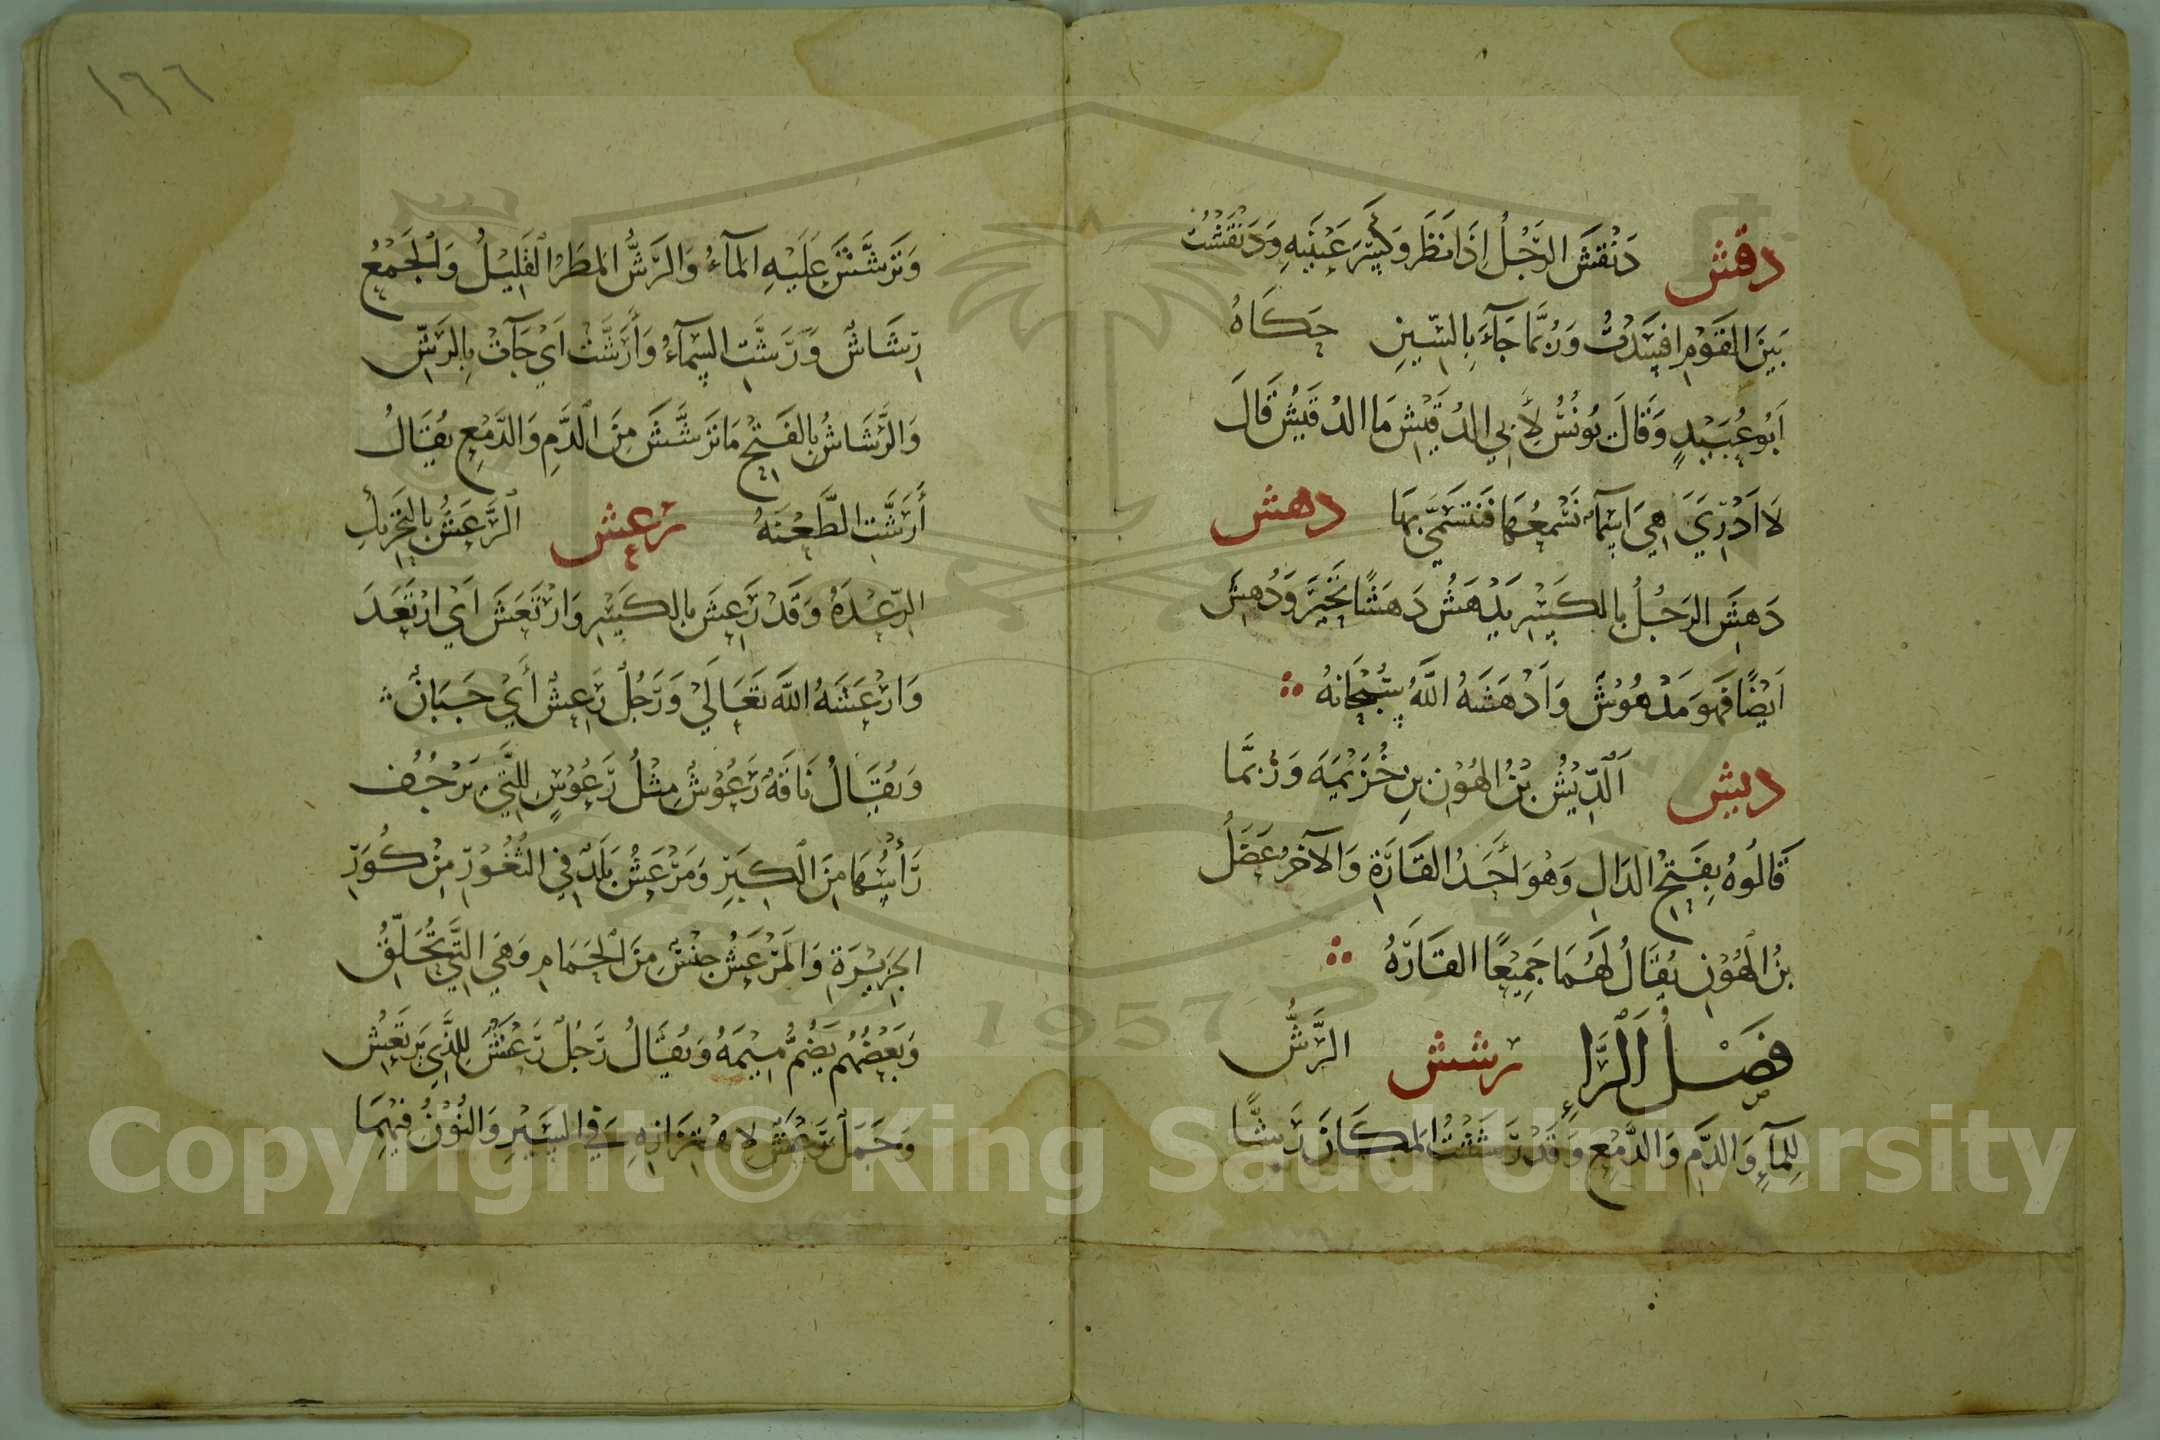 دقش دَنْقَشَ الرَّجُلُ اِذَا نَظَرَ وَكَسَّرَ عَيْنَيهِ وَدَنْقَشْتُ
بَيْنَ القَوْمِ اَفسَدْتُ وَرُبَّمَا جَآءَ بِالسِّينِ حَكَاهُ
اَبُو عُبَيْدٍ وَقَالَ يُونُسُ لِأَبِي الدُقَيْشِ مَا الدُقَيْشُ قَالَ
لَا اَدْرِي هِيَ اَسْمَآءٌ نَسْمَعُهَا فَنَتَسَمَّى بِهَا دهش
دَهِشَ الرَجُلُ بِالكَسْرِ يَدْهَشُ دَهَشًا تَحَيَّرَ وَدُهِشَ
اَيْضًا فَهوَ مَدْهُوْشٌ وَاَدْهَشَهُ اللَّهُ سُبْحَانَهُ
ديش اَلدِّيْشُ بْنُ الهُوْنِ بْنِ خُزَيْمَةَ وَرُبَّمَا
قَالُوهُ بِفَتْحِ الدَالِ وَهُوَ اَحَدُ القَارَّةِ وَالآخَرُ عَضَلُ
بْنُ الهُوْنِ يُقَالُ لَهُمَا جَمِيْعًا القَارَّةُ
فَصْلُ الرَّاءِ رشش الرَّشُّ
لِلمَآءِ وَالدَّمِ وَالدَّمْعِ وَقَدْ رَشَشْتُ المَكَانَ رَشًّا
١٦٦
وَتَرَشَّشَ عَلَيْهِ المَآءُ وَالرَّشُّ المَطَرُ القَلِيْلُ وَالجَمْعُ
رِشَاشٌ وَرَشَّتِ السَمَآءُ وَأَرَشَّتْ اَيْ جَآءَتْ بِالرَشِّ
وَالرَّشَاشُ بِالفَتْحِ مَا تَرَشَّشَ مِنَ الدَّمِ وَالدَّمْعِ يُقَالُ
أَرَشَّتِ الطَّعْنَةُ رعش الرَّعَشُ بِالتَحْرِيكِ
الرِّعْدَةُ وَقَدْ رَعِشَ بِالكَسْرِ وَارْتَعَشَ اَيْ ارْتَعَدَ
وَارْعَشَهُ اللَّه تَعَالَيْ وَرَجُلٌ رَعِشٌ أَيْ جَبَانٌ
وَيُقَالُ نَاقَةٌ رَعُوْشٌ مِثْلُ رَعُوْسٍ لِلَّتِي يَرْجُفُ
رَأْسُهَا مِنَ الكِبَرِ وَمَرْعَشُ بَلَدٌ فِي الثُغُوْرِ مِنْ كُوَرِ
الجَزِيْرَةِ وَالمَرْعَشُ جِنْسٌ مِنَ الحَمَامِ وَهِيَ الَّتِي تُحَلِّقُ
وَبَعْضُهُم يَضُمُّ مِيْمَهُ وَيُقَالُ رَجُلٌ رَعْشَنٌ لِلَّذِي يَرتَعِشُ
وَجَمَلٌ رَعْشَنٌ لِاهْتِزَازِهِ فِي السَيْرِ وَالنُوْنُ فِيْهِمَا
1957
Copyright © King Saud University